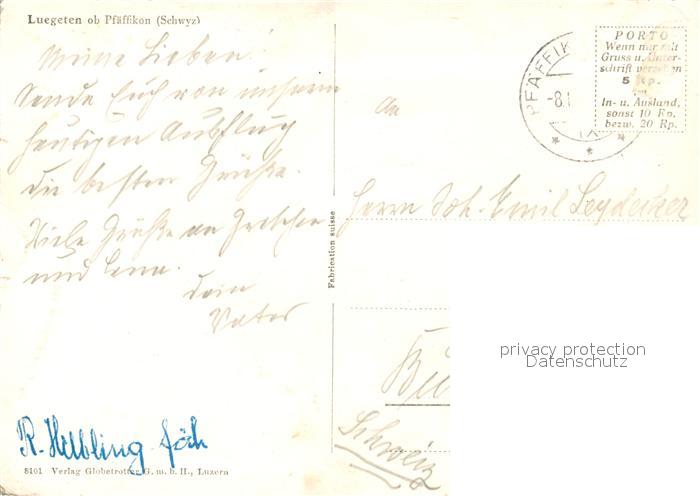 Luegeten ob Pfäffikon (Schwyz)
Meine Lieben!
Sende Euch von unserem
heutigen Ausflug
die besten Grüße.
Viele Grüße an Gretchen
und Lena.
Dein
Vater
R. Helbling
8101 Verlag Globetrotter G. m. b. H., Luzern
Fabrication suisse
PFÄFFIK
-8.
IX
PORTO
Wenn nur mit
Gruss u. Unter-
schrift versehen
5 Rp.
In- u. Ausland,
sonst 10 Rp.
bezw. 20 Rp.
An
Herrn Joh. Emil Leydecker
Schweiz
privacy protection
Datenschutz